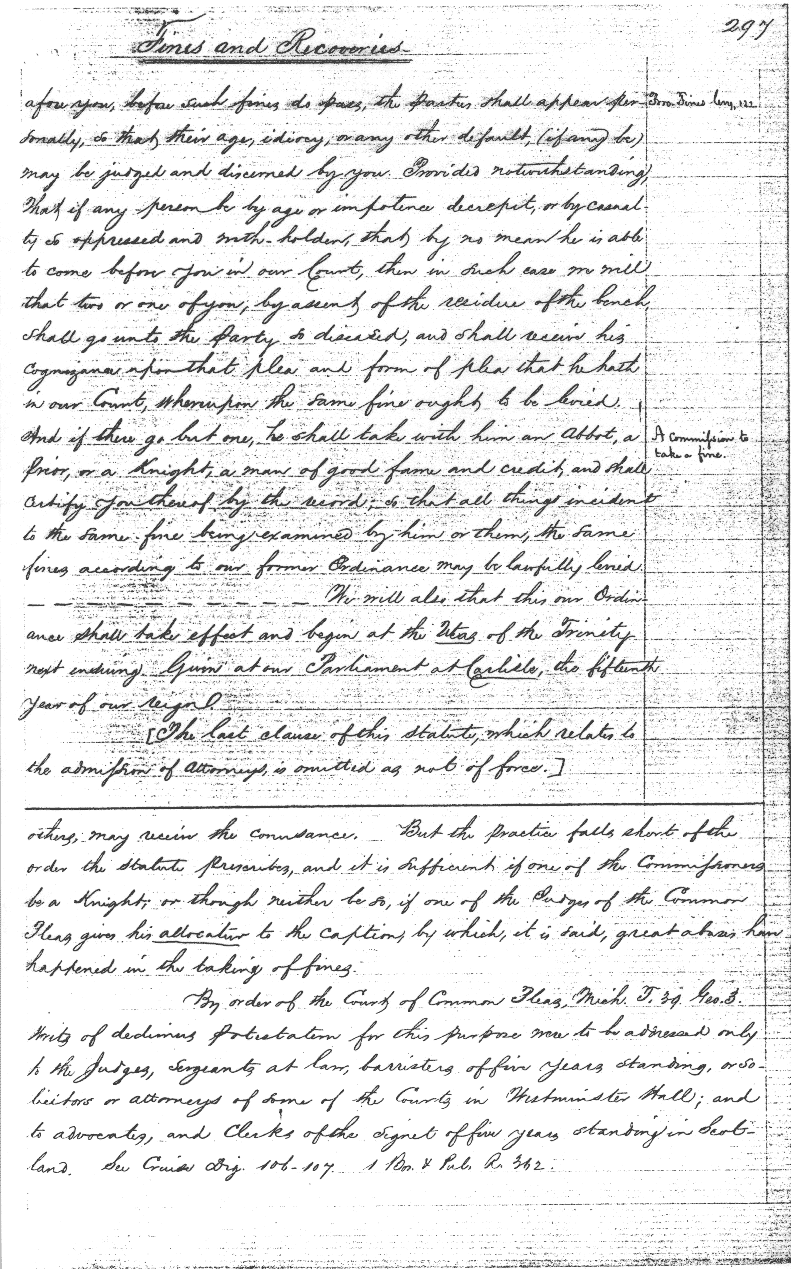 297
Fines and Recoveries
afore you, before such fines do pass, the Parties shall appear per-
sonally, so that their age, idiocy, or any other default, (if any be)
may be judged and discerned by you. Provided notwithstanding,
That if any person be by age or impotence decrepit, or by casual-
ty so oppressed and with-holden, that by no mean he is able
to come before you in our Court, then in such case we will
that two or one of you, by assent of the residue of the bench,
shall go unto the Party so diseased, and shall receive his
cognizance upon that plea and form of plea that he hath
in our Court, whereupon the same fine ought to be levied.
And if there go but one, he shall take with him an Abbot, a
Prior, or a Knight, a man of good fame and credit, and shall
certify you thereof by the record; so that all things incident
to the same fine being examined by him or them, the same
fines according to our former Ordinance may be lawfully levied
We will also that this our Ordin-
ance shall take effect and begin at the Utas of the Trinity
next ensuing. Given at our Parliament at Carlisle, the fifteenth
year of our reign
[The last clause of this statute, which relates to
the admission of Attorneys, is omitted as not of force.]
Fines levy, 122
A commission to
take a fine.
others, may receive the conusance. But the practice falls short of the
order the statute prescribes, and it is sufficient if one of the Commissioners
be a Knight; or though neither be so, if one of the Judges of the Common
Pleas gives his allocatur to the caption, by which, it is said, great abuses have
happened in the taking of fines.
By order of the Court of Common Pleas, Mich. T. 39 Geo. 3.
Writs of dedimus potestatem for this purpose were to be addressed only
to the Judges, sergeants at law, barristers of five years standing, or so-
licitors or attorneys of some of the Courts in Westminster Hall; and
to advocates, and Clerks of the signet of five years standing in Scot-
land. See Cruise Dig. 106-107. 1 Bos. & Pul. R. 362.